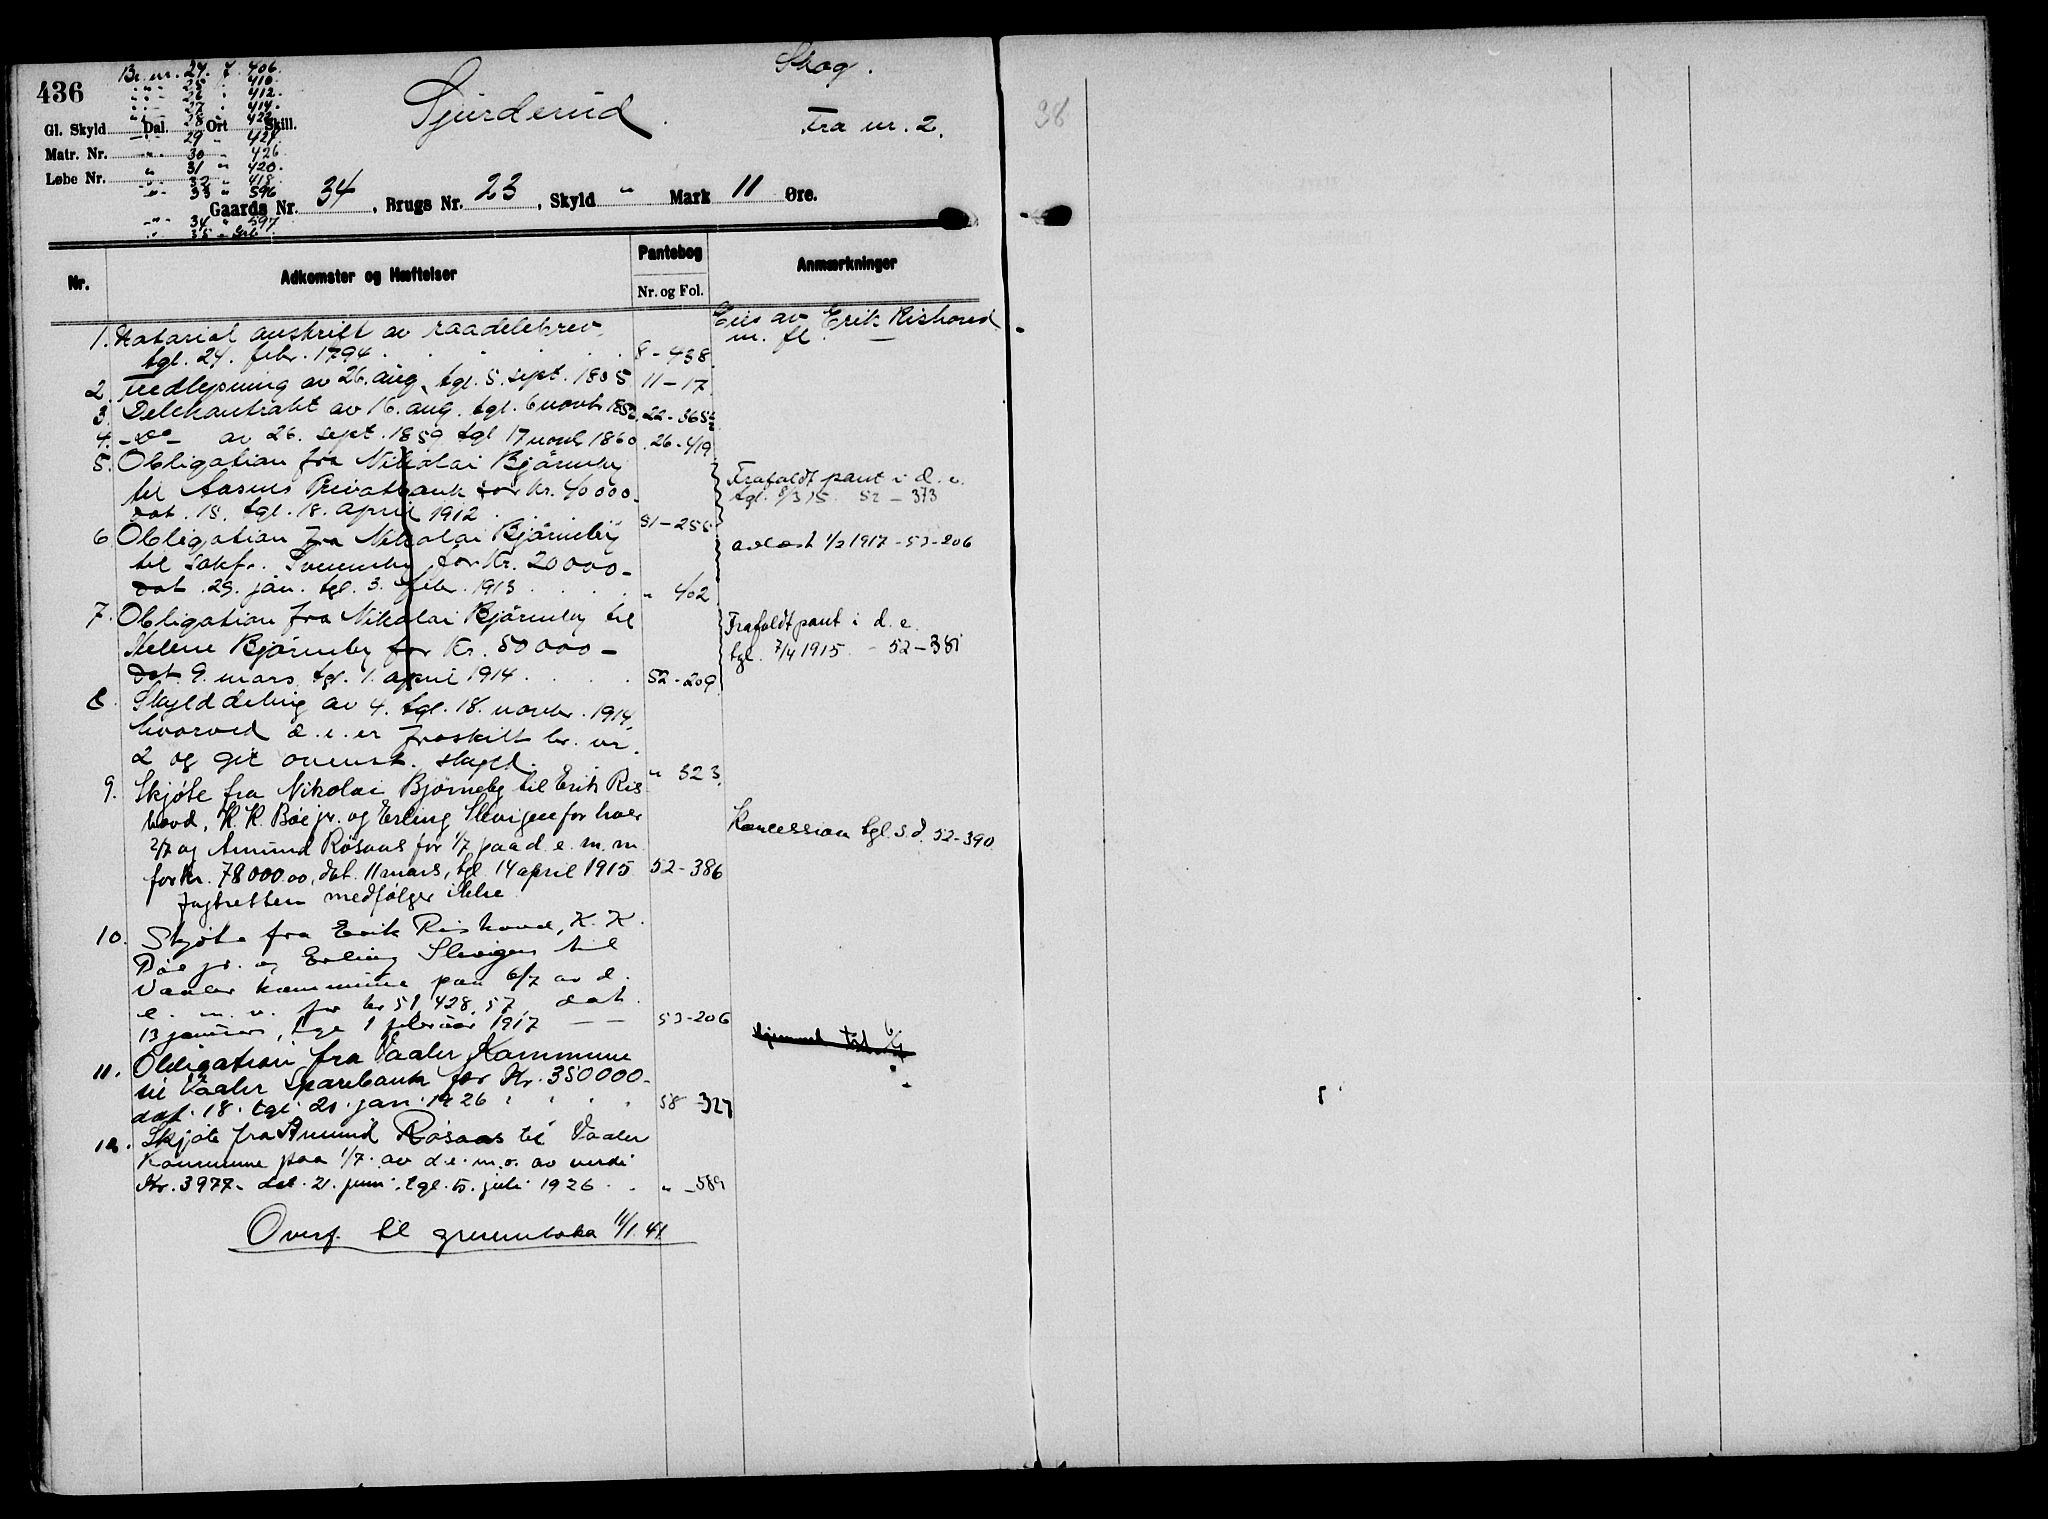 436
Br. nr. 24. f. 406.
" 25 " 410.
" 26 " 412.
" 27 " 414.
" 28 " 422
" 29 " 424.
" 30 " 426
" 31 " 420.
" 32 " 418.
" 33 " 596
" 34 " 597
" 35
Gl. Skyld Dal. Ort Skill.
Matr. Nr.
Løbe Nr.
Sjurderud.
Skog.
Fra nr. 2.
Gaards Nr. 34, Brugs Nr. 23, Skyld " Mark 11 Øre.
Nr.
Adkomster og Hæftelser
Pantebog
Nr. og Fol.
Anmærkninger
Eies av Erik Rishovd
m. fl.
1. Notarial avskrift av raadelebrev
tgl. 24. febr. 1794. 8-438
2. Fredlysning av 26. aug. tgl. 5. sept. 1805 11-17
3. Delekontrakt av 16. aug. tgl. 6 novbr 1850. 22-365
4. -Do- av 26. sept. 1859 tgl 17 novbr 1860. 26-419
5. Obligation fra Nikolai Bjørneby
til Aasnes Privatbank for Kr. 40000-
dat. 15. tgl. 18. april 1912 51-255
Frafaldt pant i d. e.
tgl. 8/3 15. 52-373
6. Obligation fra Nikolai Bjørneby
til Sakf. for Kr. 20000-
dat. 29. jan. tgl. 3. febr. 1913 " 402
avlest 1/2 1917-53-206
7. Obligation fra Nikolai Bjørneby til
Helene Bjørneby for Kr. 50000-
dat. 9. mars tgl. 1. april 1914 52-209
Frafaldt pant i d. e.
tgl. 7/4 1915 - 52-381
8. Skylddeling av 4. tgl. 18. novbr. 1914,
hvorved d. e. er fraskilt br. nr.
2 og git ovenst. skyld. " 323.
9. Skjøte fra Nikolai Bjørneby til Erik Ris
hovd, K. K. Bøe jr. og Erling Slevigen for hver
2/7 og Amund Røsaas for 1/7 paa d. e. m. m.
for Kr. 78000.00, dat. 11 mars, tgl. 14 april 1915 52-386
Jagtretten medfølger ikke.
Koncession tgl. s. d. 52-390
10. Skjøte fra Erik Rishovd, K. K.
Bøe jr. og Erling Slevigen til
Vaaler kommune paa 6/7 av d.
e. m. v. for kr 51,428,57, dat.
13 januar, tgl 1 februar 1917 — — 53-206
11. Obligation fra Vaaler Kommune
til Vaaler Sparebank for Kr. 350000-
dat. 18. tgl. 20. jan. 1926 58-327
12. Skjøte fra Amund Røsaas til Vaaler
Kommune paa 1/7. av d. e. m. v. av verdi
Kr. 3977- dat. 21. juni. tgl. 5. juli 1926. " -589
Overf. til grunnboka 11/1.41.
38